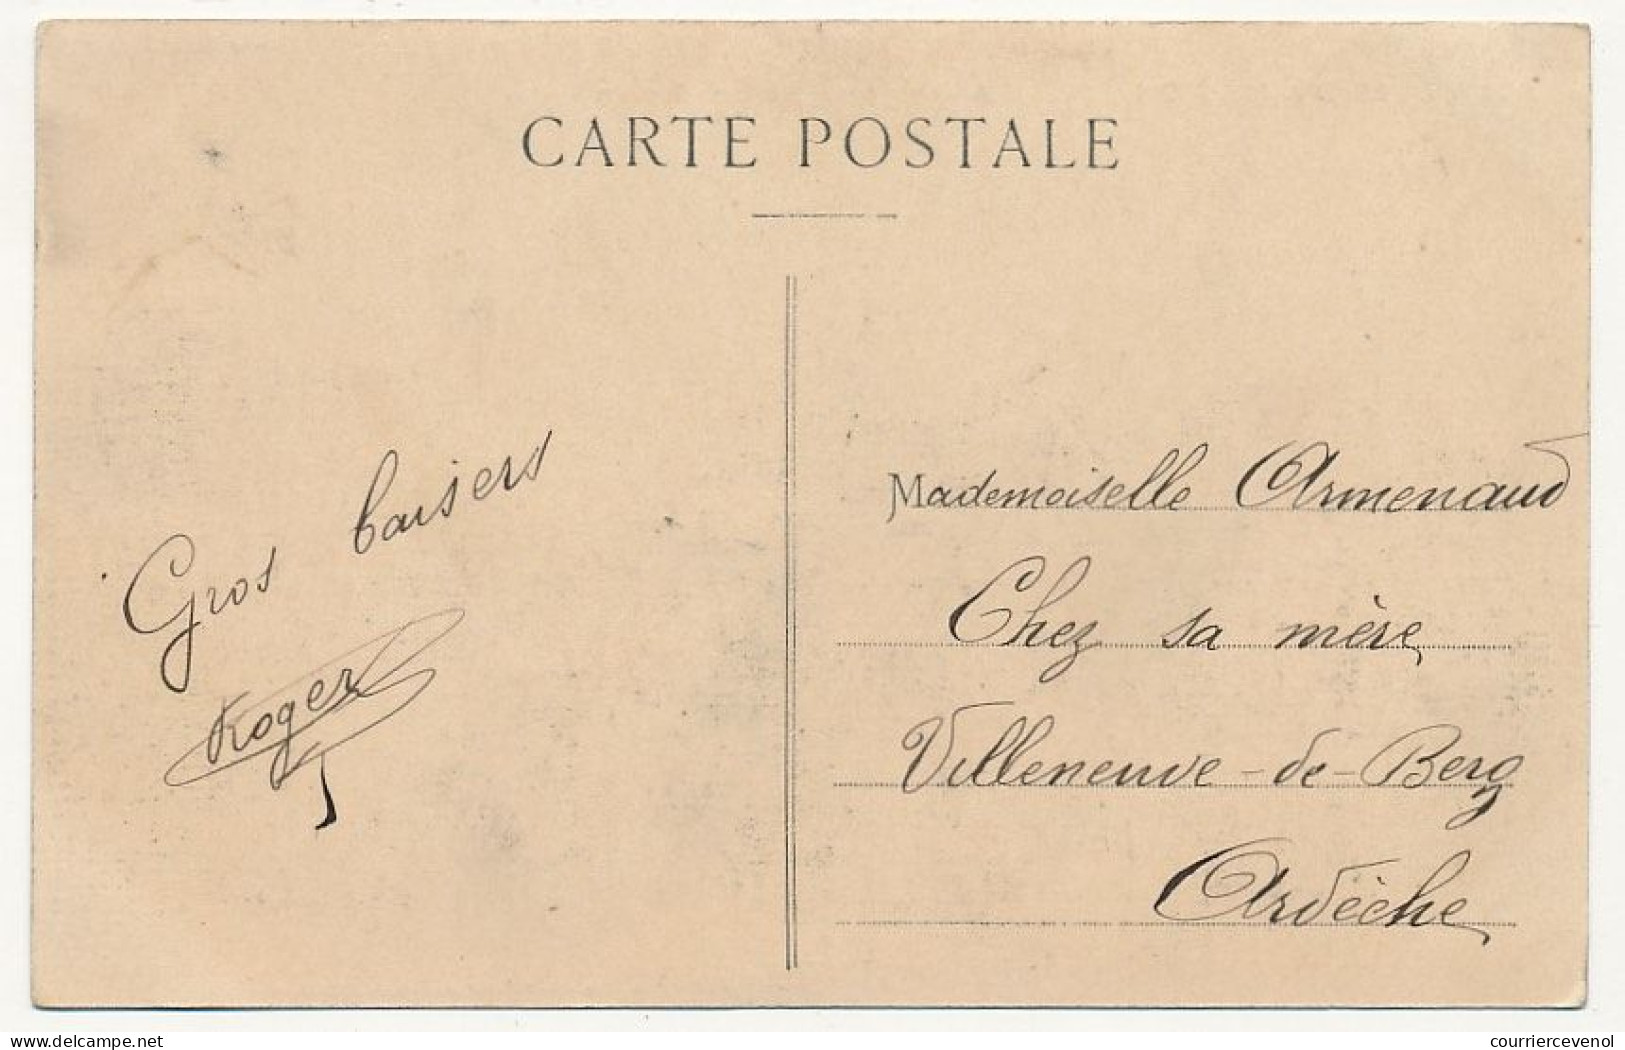 CARTE POSTALE
Gros baisers
Roger
Mademoiselle Armenaud
Chez sa mère
Villeneuve-de-Berg
Ardèche
www.delcampe.net
courriercevenol